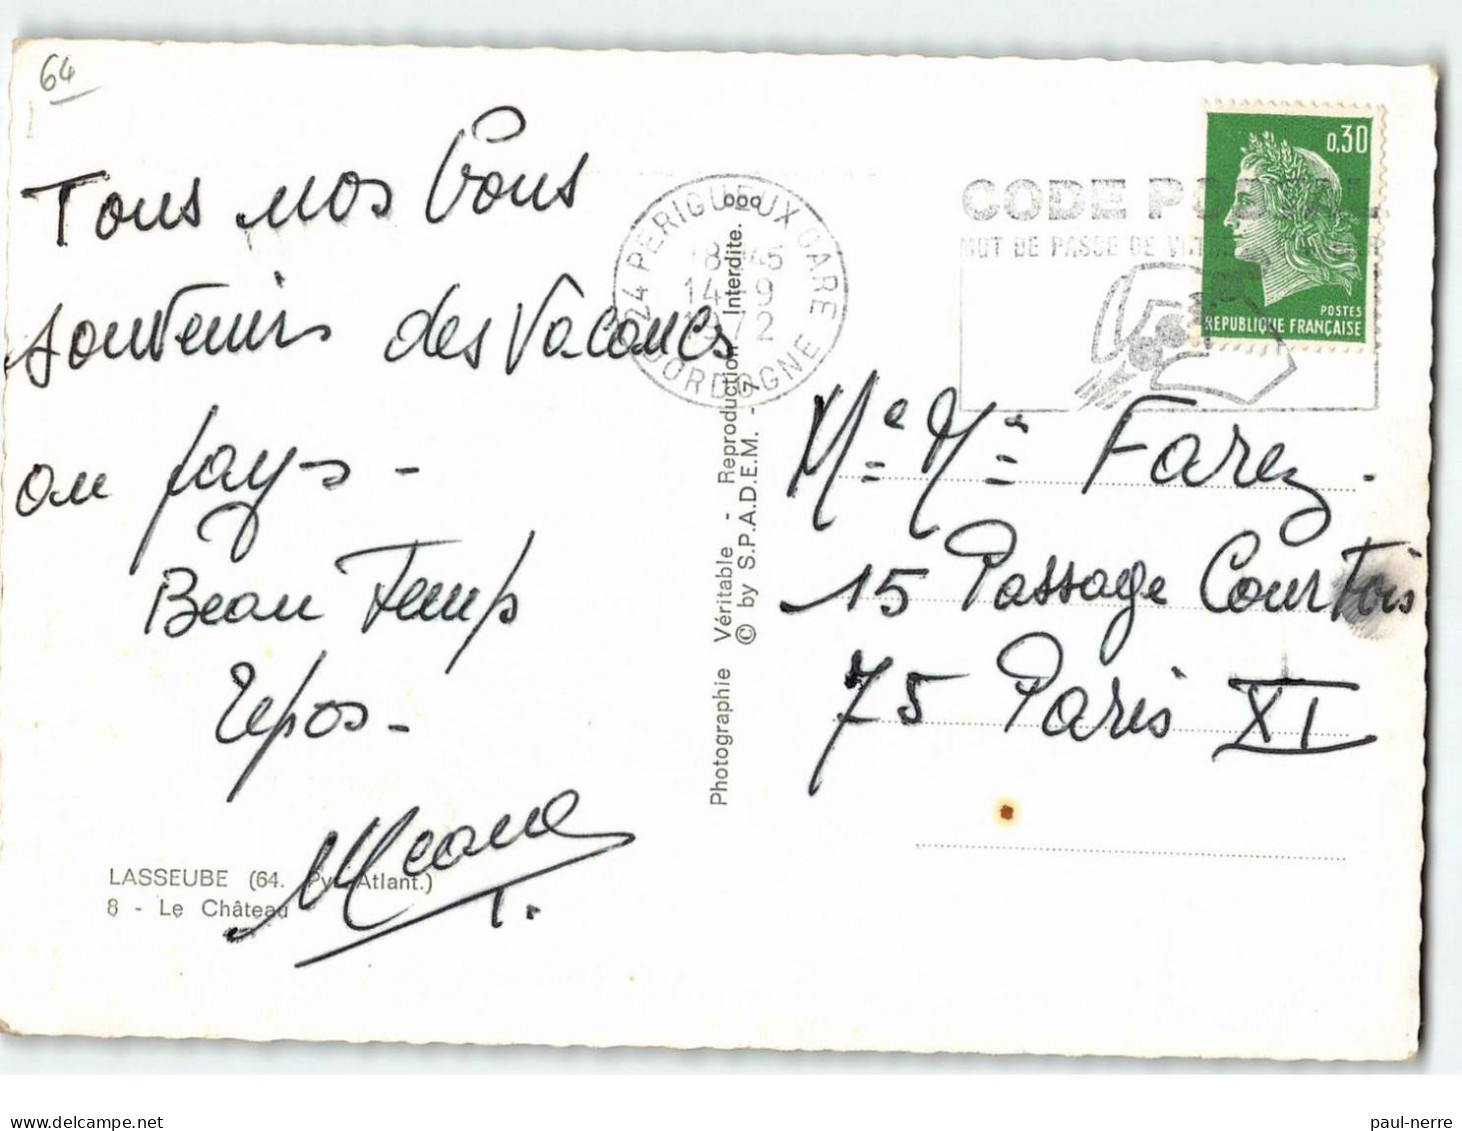 64
Tous nos bons
souvenirs des Vacances
au pays -
Beau Temps
repos -
LASSEUBE (64. Pyr. Atlant.)
8 - Le Château
Photographie Véritable - Reproduction Interdite.
© by S.P.A.D.E.M. -
24 PERIGUEUX GARE
18H45
14-9
1972
DORDOGNE
CODE POSTAL
MOT DE PASSE DE
0,30
POSTES
REPUBLIQUE FRANÇAISE
Me Me Farez.
15 Passage Courtois
75 Paris XI
paul-nerre